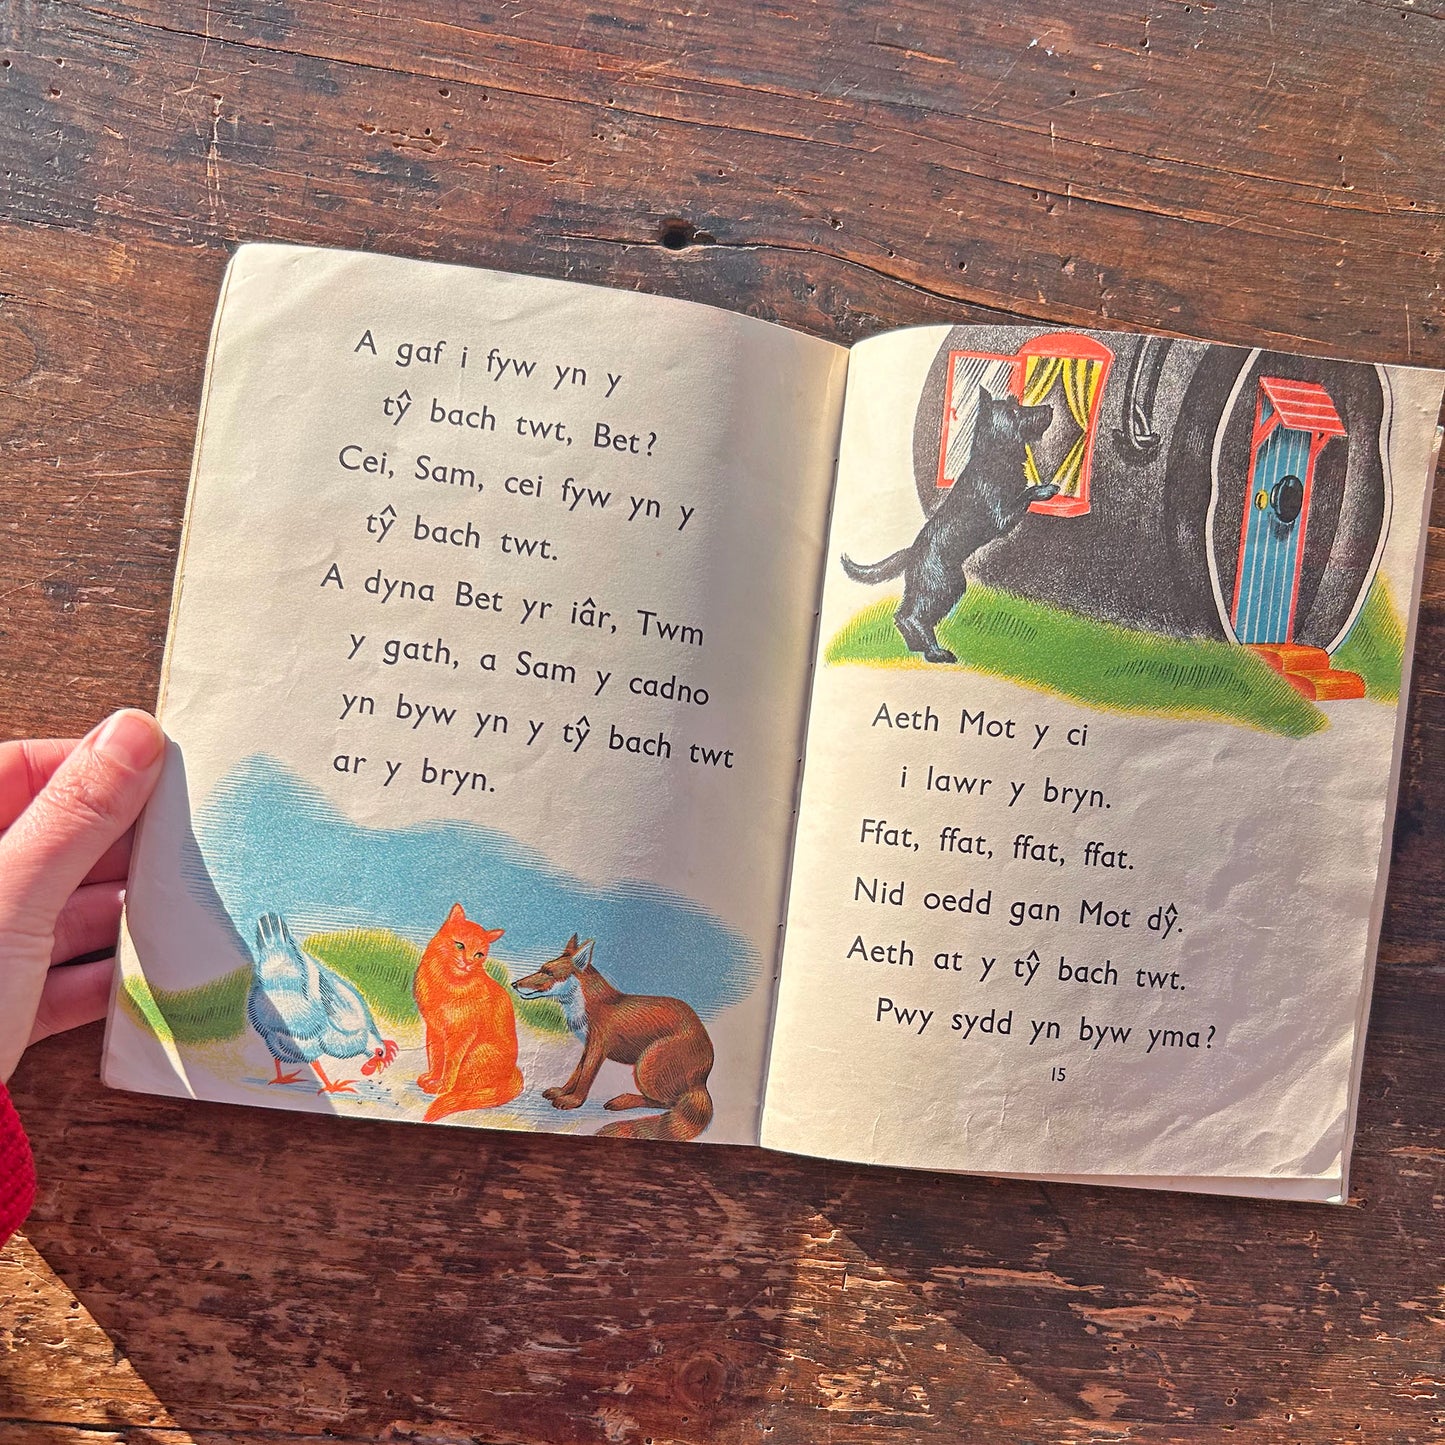 A gaf i fyw yn y
tŷ bach twt, Bet?
Cei, Sam, cei fyw yn y
tŷ bach twt.
A dyna Bet yr iâr, Twm
y gath, a Sam y cadno
yn byw yn y tŷ bach twt
ar y bryn.
Aeth Mot y ci
i lawr y bryn.
Ffat, ffat, ffat, ffat.
Nid oedd gan Mot dŷ.
Aeth at y tŷ bach twt.
Pwy sydd yn byw yma?
15